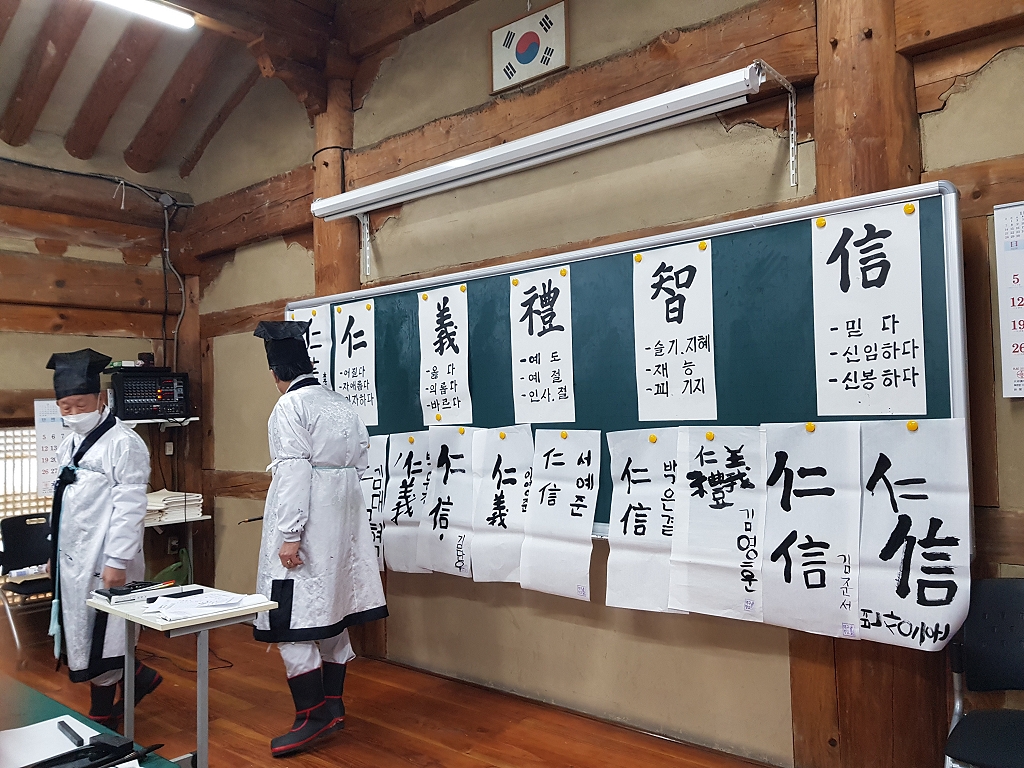 仁
仁
-어질다
-자애롭다
義
-옳 다
-의롭다
-바르다
禮
-예 도
-예 절
-인사.절
智
-슬기.지혜
-재 능
-꾀 기지
信
-믿 다
-신임하다
-신봉하다
仁
義
仁
信
仁
義
仁
信
서예준
仁
信
박은결
仁義
禮
김영훈
仁
信
김준서
仁
信
11
5
12
19
26
5 6 7
12 13 14
19
26